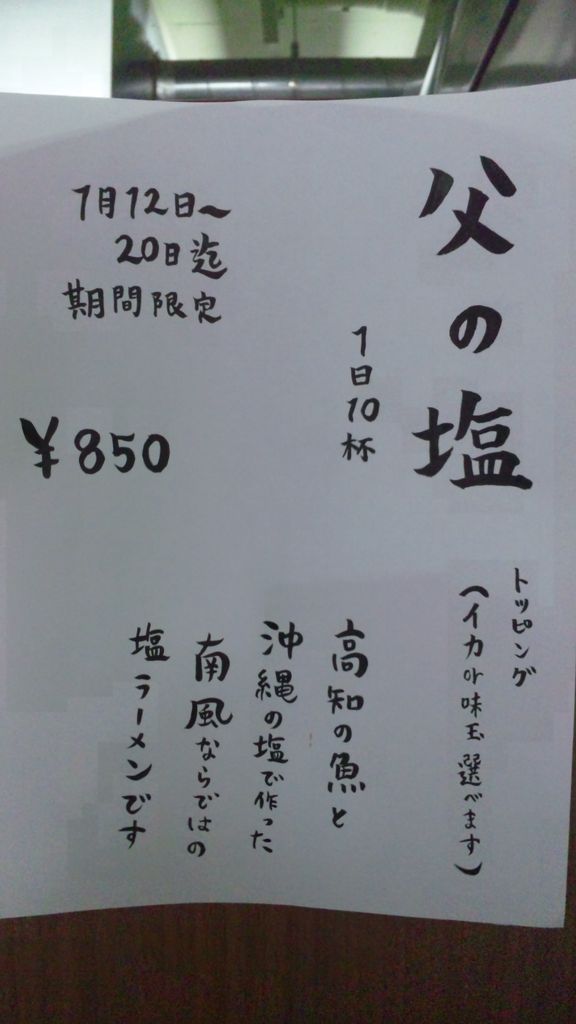 父の塩
トッピング
(イカor味玉選べます)
1日10杯
高知の魚と
沖縄の塩で作った
南風ならではの
塩ラーメンです
1月12日〜
20日迄
期間限定
¥850